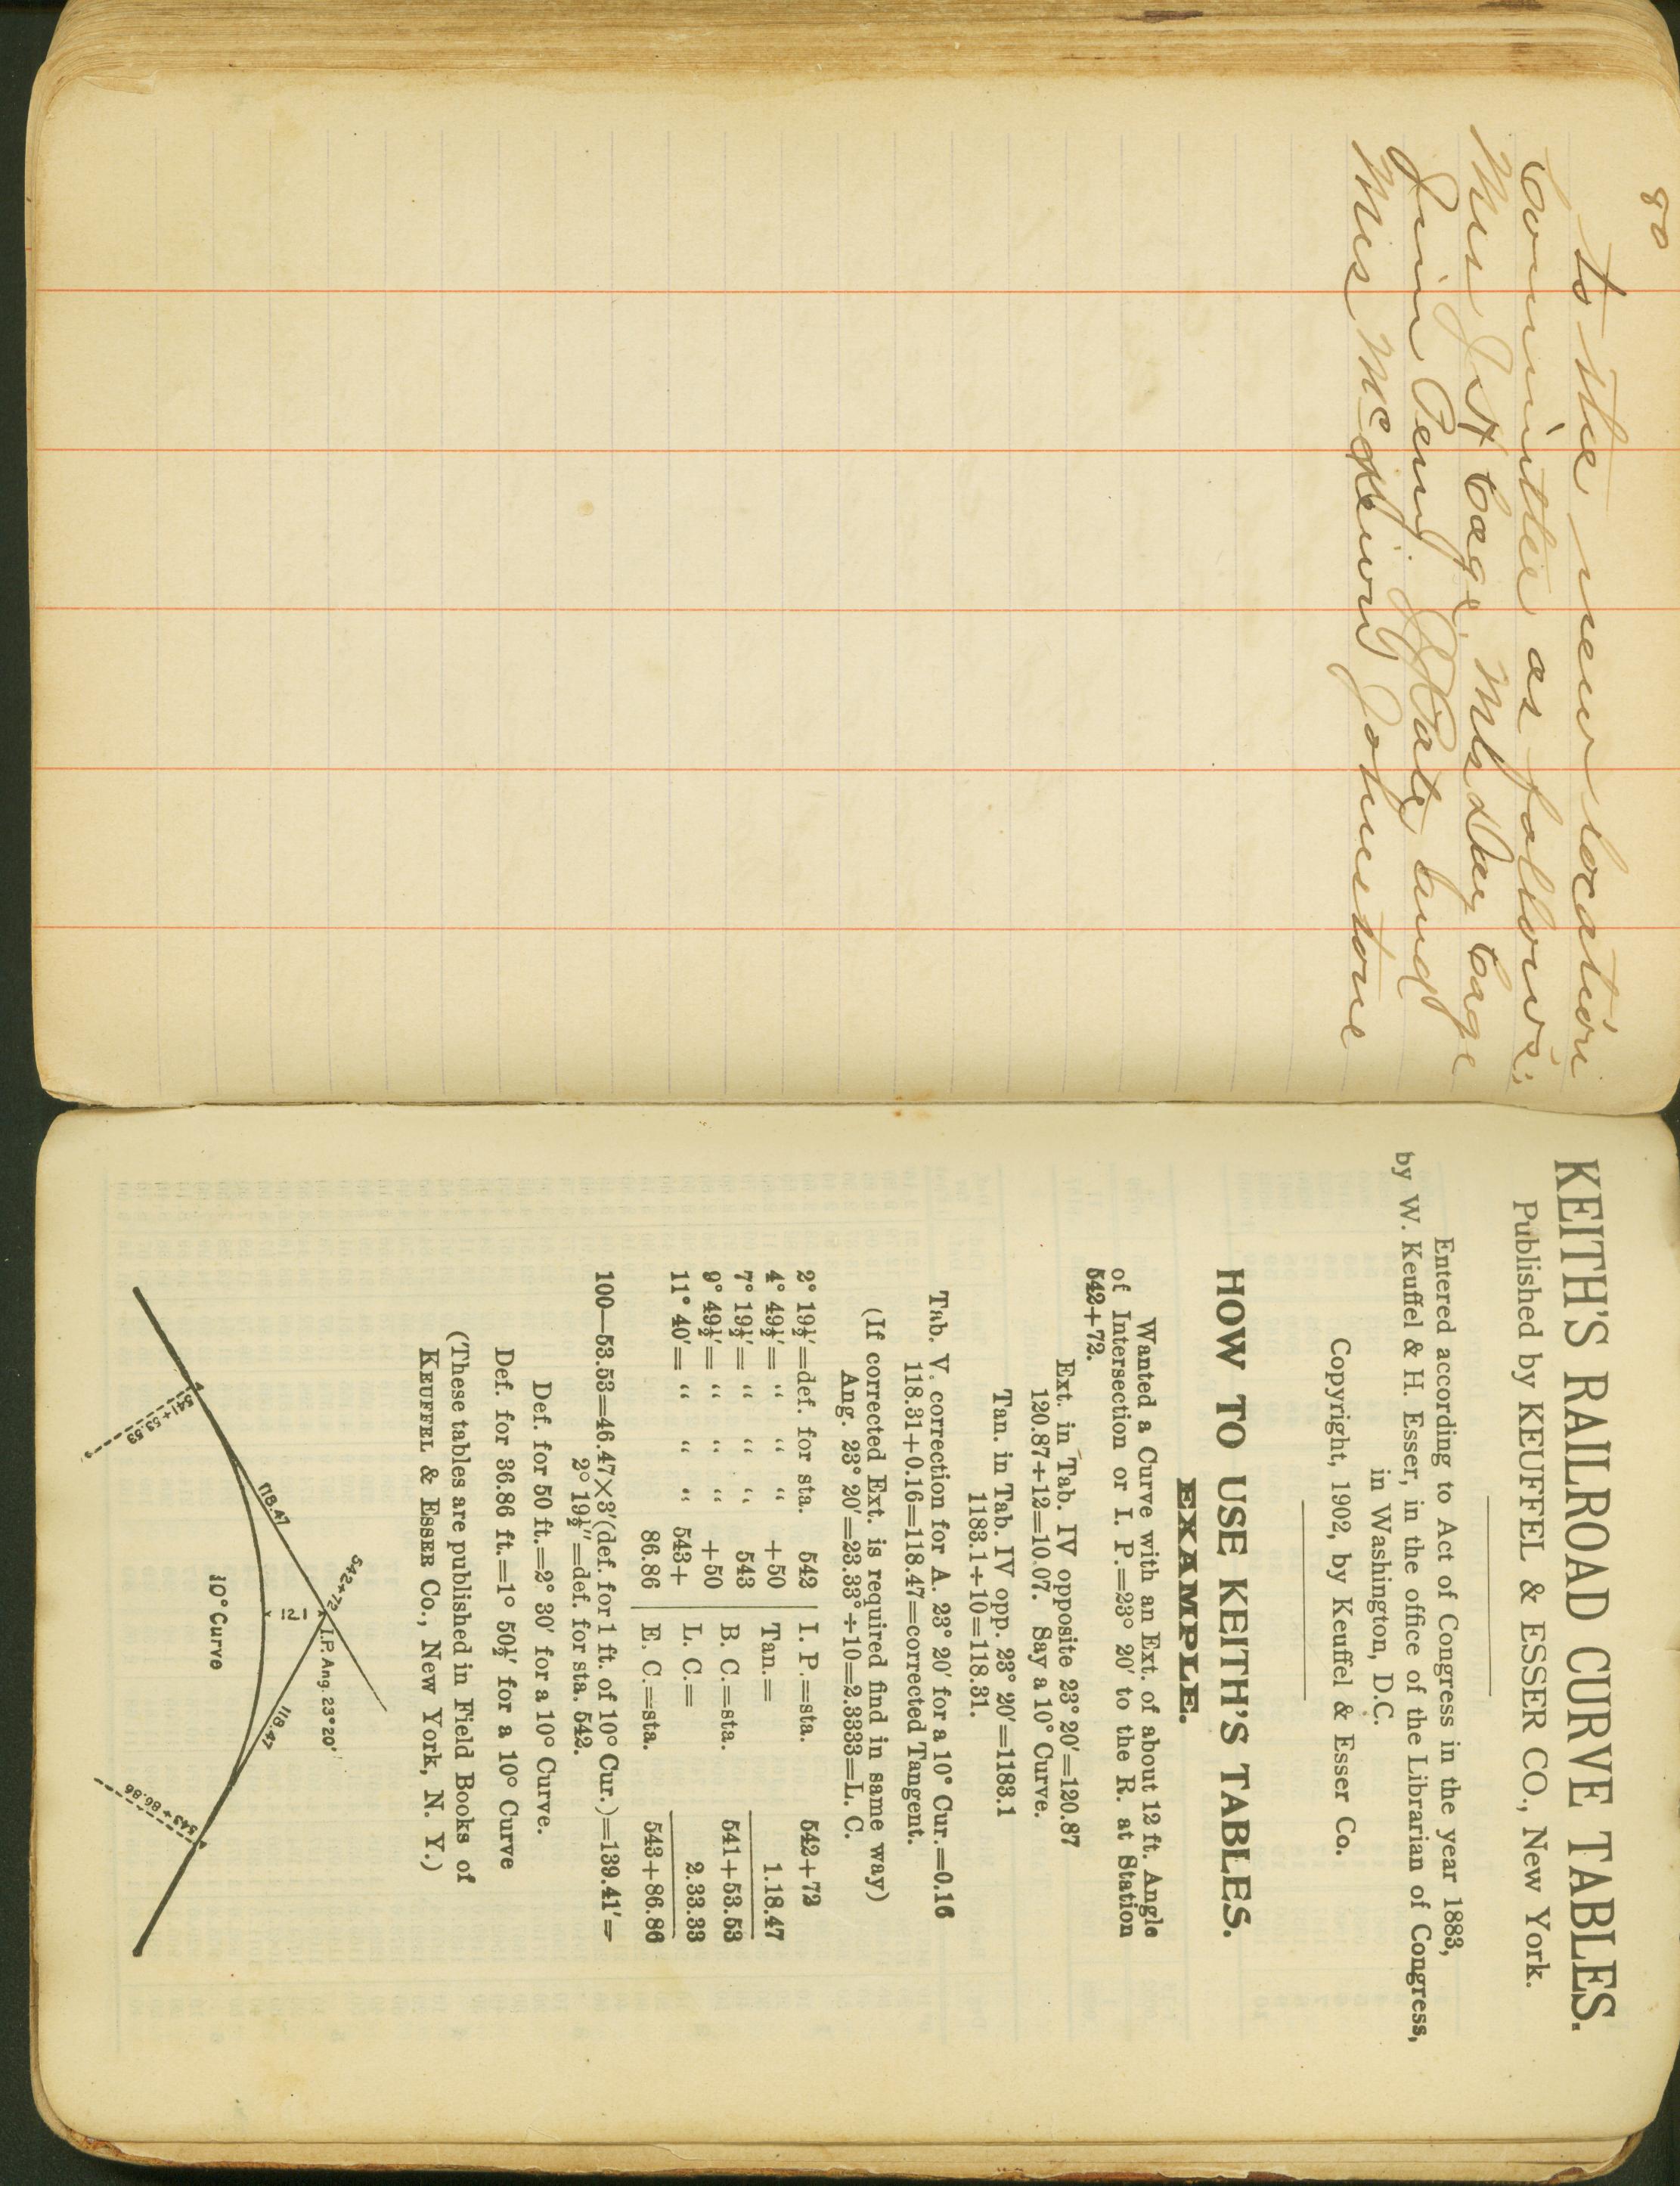 80
to the new location
Committee as follows:
Mrs J. H. Cage, Mrs Day Cage
Jim Perry, J. H. Tate, and
Mrs McGlewn Johnstone
KEITH'S RAILROAD CURVE TABLES.
Published by KEUFFEL & ESSER CO., New York.
Entered according to Act of Congress in the year 1883,
by W. Keuffel & H. Esser, in the office of the Librarian of Congress,
in Washington, D.C.
Copyright, 1902, by Keuffel & Esser Co.
HOW TO USE KEITH'S TABLES.
EXAMPLE.
Wanted a Curve with an Ext. of about 12 ft. Angle
of Intersection or I. P.=23° 20′ to the R. at Station
542+72.
Ext. in Tab. IV opposite 23° 20′=120.87
120.87÷12=10.07. Say a 10° Curve.
Tan. in Tab. IV opp. 23° 20′=1183.1
1183.1÷10=118.31.
Tab. V. correction for A. 23° 20′ for a 10° Cur.=0.16
118.31+0.16=118.47=corrected Tangent.
(If corrected Ext. is required find in same way)
Ang. 23° 20′=23.33°÷10=2.3333=L. C.
2° 19½′=def. for sta. 542 I. P.=sta. 542+72
4° 49½′= “ “ “ +50 Tan.= 1.18.47
7° 19½′= “ “ “ 543 B. C.=sta. 541+53.53
9° 49½′= “ “ “ +50 L. C.= 2.33.33
11° 40′= “ “ “ 543+
86.86 E. C.=sta. 543+86.86
100—53.53=46.47×3′(def. for 1 ft. of 10° Cur.)=139.41′=
2° 19½″=def. for sta. 542.
Def. for 50 ft.=2° 30′ for a 10° Curve.
Def. for 36.86 ft.=1° 50½′ for a 10° Curve
(These tables are published in Field Books of
KEUFFEL & ESSER Co., New York, N. Y.)
542+72
I.P. Ang. 23°20′
118.47
118.47
12′
541+53.53
543+86.86
10° Curve